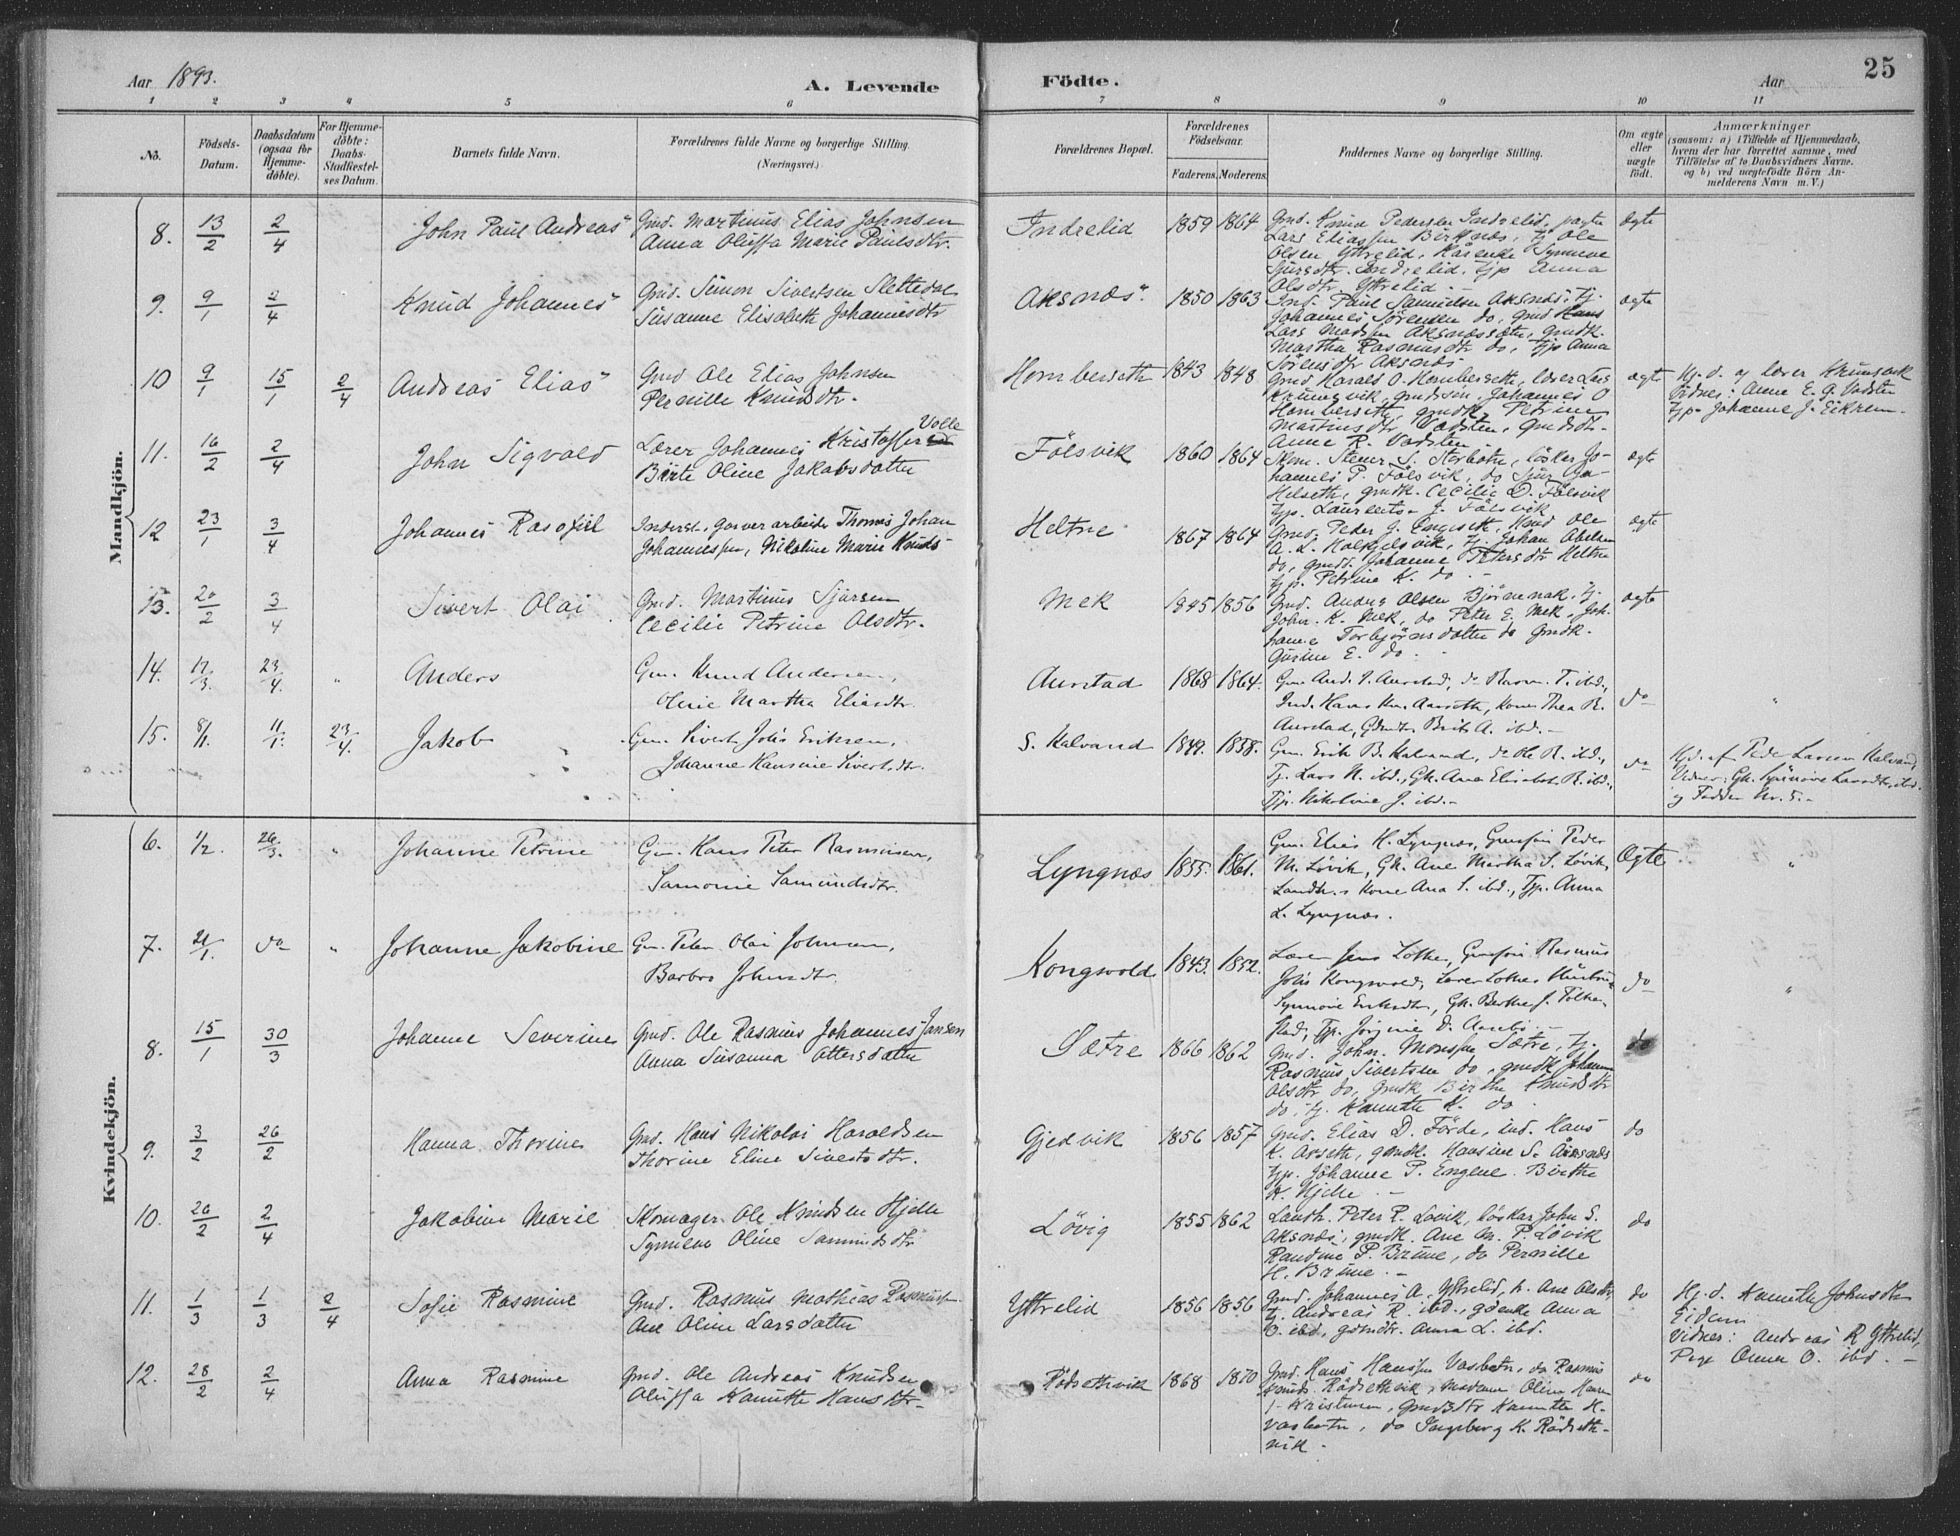 Aar 1893.
A. Levende
Födte.
Aar
25
1 2 3 4 5 6 7 8 9 10 11
No.
Födsels-
Datum.
Daabsdatum
(ogsaa for
Hjemme-
døbte).
For Hjemme-
døbte:
Daabs-
Stadfæstel-
ses Datum.
Barnets fulde Navn.
Forældrenes fulde Navne og borgerlige Stilling.
(Næringsvei.)
Forældrenes Bopæl.
Forældrenes
Födselsaar.
Faderens. Moderens.
Faddernes Navne og borgerlige Stilling.
Om ægte
eller
uægte
født.
Anmærkninger
(saasom: a) i Tilfælde af Hjemmedaab,
hvem der har forrettet samme, med
Tilföielse af to Daabsvidners Navne.
og b) ved uægtefödte Börn An-
melderens Navn m. V.)
Mandkjön.
8. 13/2 2/4 John Paul Andreas Gmd. Martinus Elias Johnsen
Anna Oluffa Marie Paulsdtr.
Indrelid 1859 1864 Gmd. Knud Pedersen Indrelid,
Lars Eliassen Birknæs, tj. Ole
Olsen Yttrelid,
Indrelid, tjp Anna
Olsdtr Yttrelid.
Ægte
9. 9/1 2/4 Knud Johannes Gmd. Simon Sivertsen Slettedal
Susanne Elisabeth Johannesdtr
Aksnæs. 1850 1863 Paul Samuelsen Aksnæs, tj.
Johannes Sørensen do, gmd Hans
Lars Madsen gmdk.
Martha Rasmusdtr do, tjp Anna
Sørensdtr Aksnæs
ægte
10 9/1 15/1 2/4 Andreas Elias Gmd Ole Elias Johnsen
Pernille Knudsdtr.
Hornberseth 1843 1848 Gmd Harald O. Hornberseth, lærer Lars
Krumsvik, gmdsøn. Johannes O
Hornberseth, gmdk. Petrine
Martinusdtr Vadsten, gmdsdtr.
Anne R. Vadsten
ægte Hj. d. af lærer Krumsvik
Vidner: Anne E. G. Vadsten
tjp Johanne J. Eikrem.
11. 16/2 2/4 John Sigvald Lærer Johannes Kristoffer Volle
Birte Oline Jakobsdatter
Fölsvik 1860 1864 Skom. Stener S. Storbotn, løsker Jo-
hannes P. Fölsvik, do Sjur
Helseth, gmdk. Cecilie D. Fölsvik
tjp. Lauretse J. Fölsvik
ægte
12 23/1 3/4 Johannes Rasofiel Inderst, garverarbeider Thomas Johan
Johannessen, Nikoline Marie Knuds-
Heltne 1867 1864 Gmd. Peter J. Engeseth, Knud Ole
A. L. Kalkjelsvik, tj. Johan Abelsen
do, gmdd. Johanne Petersdtr Heltne
tjp. Petrine K. do.
ægte
13. 20/2 3/4 Sivert Olai Gmd. Martinus Sjursen
Cecilie Petrine Olsdtr.
Mek 1845 1856 Gmd. Anders Olsen Björnenak, tj.
John K. Mek, do Peter E. Mek, Joh-
hanne Torbjörnsdatter do Gmdk.
Gurine E. do.
ægte
14. 17/3. 23/4. " Anders Gm. Knud Andersen,
Oline Martha Eliasdtr.
Aurstad 1868 1864. Gm. And. I. Aurstad, do Rasm. T. ibd.,
Ind. Hans Kn. Aarseth, kone Thea R.
Aurstad, Gdmdtr. Brit A. ibd.
do "
15. 8/1. 11/1. 23/4. Jakob Gm. Sivert Johs Eriksen,
Johanne Hansine Sivertsdtr.
S. Kalvand 1849. 1858. Gm. Erik B. Kalvand, do Ole R. ibd.,
Tj. Lars N. ibd., Gk. Ane Elisabet R. ibd.,
Tjp. Nikoline J. ibd.
do Hjd. af Peder Larsen Kalvand,
Vidner: Gk. Synnøve Larsdtr. ibd.
og Fadder Nr. 5.
Kvindekjön.
6. 1/2. 26/3. " Johanne Petrine Gm. Hans Peter Rasmussen,
Samonie Samundsdtr.
Lyngnæs 1855. 1861. Gm. Elias H. Lyngnæs, Gmsøn Peder
M. Løvik, Gk. Ane Martha S. Løvik,
Landh.s Kone Ana S. ibd., Tjp. Anna
L. Lyngnæs.
Ægte "
7. 21/1. do " Johanne Jakobine Gm. Peter Olai Johnsen,
Barbro Johnsdtr.
Kongsvold 1843. 1852. Lærer Jens Lothe, Gmsøn Rasmus
Johs Kongsvold, Lærer Lothes Hustru
Synnøve Eriksdtr, Gk. Berthe J. Tolke-
stad, Tjp. Jørgine D. Aarebø.
do "
8. 15/1 30/3 Johanne Severine Gmd. Ole Rasmus Johannes Jansen
Anna Susanna Ottersdatter
Sætre 1866 1862 Gmd. John. Monssen Sætre, tj.
Rasmus Sivertsen do, gmdk Johanne
Olsdtr do, gmdk Birthe Knudsdtr
do, tj. Kanutte K. do.
do
9. 3/2 26/2 Hanna Thorine Gmd. Hans Nikolai Haraldsen
Thorine Eline Sivertsdtr.
Gjedvik 1856 1857 Gmd. Elias D. Förde, ind. Hans
K. Arseth, gmdk. Hansine S. Aksnæs
tjp. Johanne P. Engene. Birthe
H. Hjelle.
do
10. 26/2 2/4 Jakobine Marie Skomager Ole Knudsen Hjelle
Synneve Oline Samundsdtr
Lövig 1855 1862 Landh. Peter R. Lövik, løskar John S.
Aksnæs, gmdk. Ane M. P. Lövik
Randine P. Brune, do Pernille
H. Brune.
do
11. 1/3 1/3 2/4 Sofie Rasmine Gmd. Rasmus Mathias Rasmussen
Ane Oline Larsdatter
Yttrelid 1856 1856 Gmd. Johannes A. Yttrelid, k. Ane Olsdtr
tj. Andreas R. ibd., gdenke Anna
O. ibd, gdmdtr. Anna L. ibd.
do Hj. d. Kanutte Johnsdtr
Eidem
Vidner: Andreas R Yttrelid,
Pige Anna O. ibd.
12. 28/2 2/4 Anna Rasmine Gmd. Ole Andreas Knudsen
Oluffa Kanutte Hansdtr.
Rödsethvik 1868 1870 Gmd. Hans Hanssen Vasbotn, do Rasmus
Knuds. Rödsethvik, Madam Olina Hans
Kristensen, Gmdsdtr Kanutte H.
Vasbotn, do Ingeborg K. Rödseth-
vik.
do